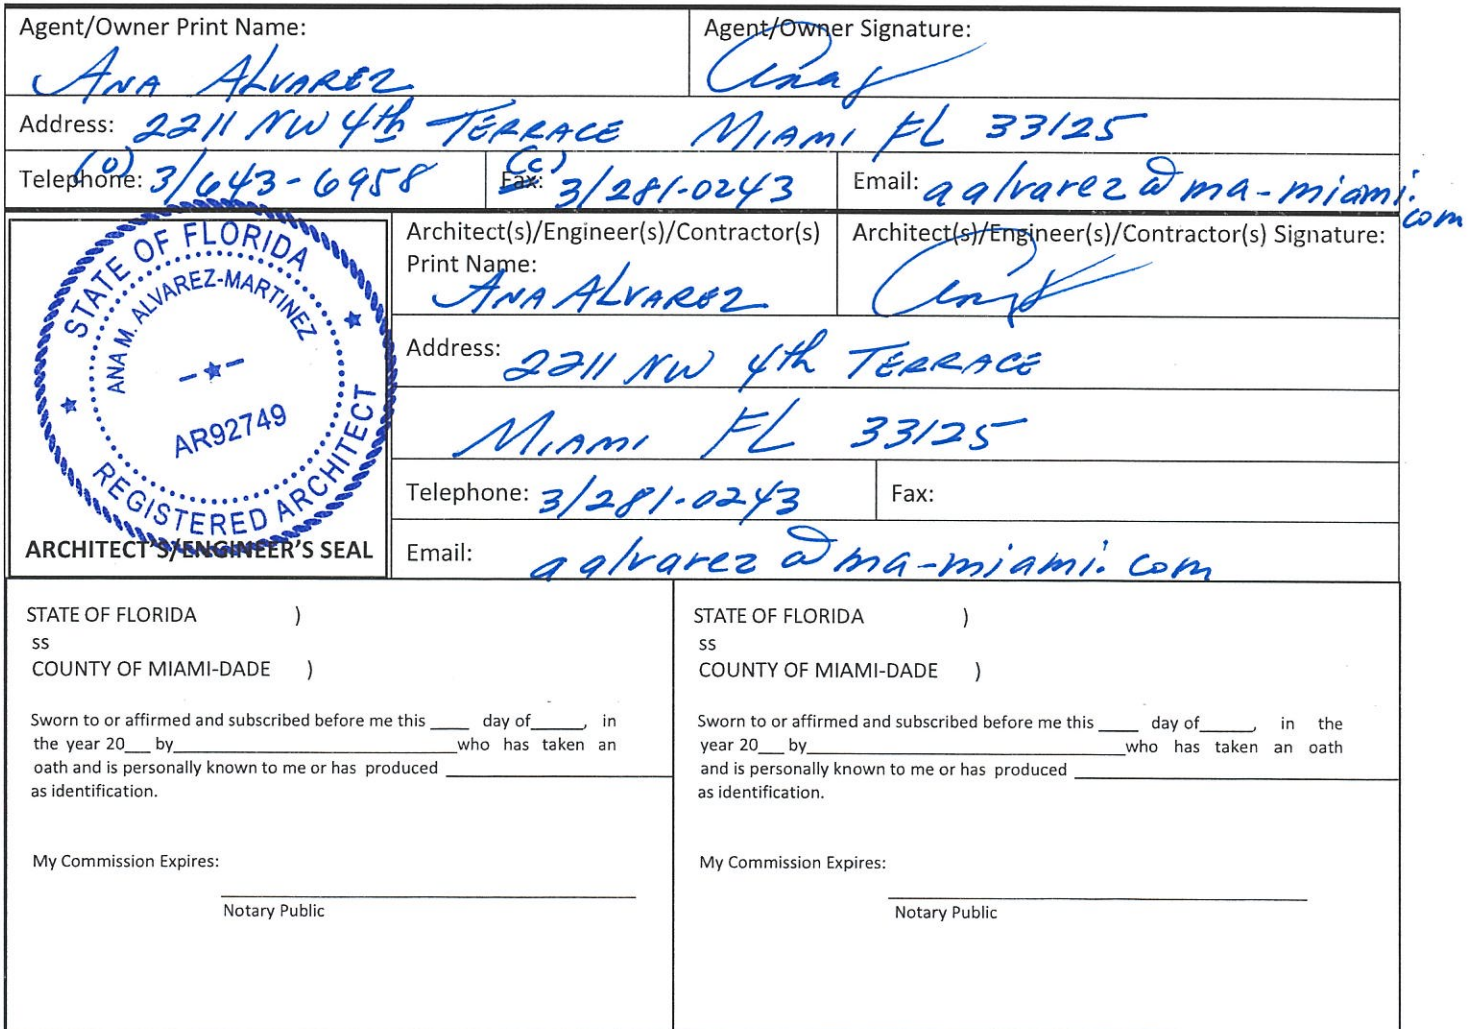 Agent/Owner Print Name:
ANA ALVAREZ
Agent/Owner Signature:
Address: 2211 NW 4th TERRACE MIAMI FL 33125
Telephone: (O) 3/643-6958
Fax: (C) 3/281-0243
Email: aalvarez@ma-miami.com
STATE OF FLORIDA
ANA M. ALVAREZ-MARTINEZ
AR92749
REGISTERED ARCHITECT
ARCHITECT'S/ENGINEER'S SEAL
Architect(s)/Engineer(s)/Contractor(s)
Print Name:
ANA ALVAREZ
Architect(s)/Engineer(s)/Contractor(s) Signature:
Address: 2211 NW 4th TERRACE
MIAMI FL 33125
Telephone: 3/281-0243
Fax:
Email: aalvarez@ma-miami.com
STATE OF FLORIDA )
ss
COUNTY OF MIAMI-DADE )
Sworn to or affirmed and subscribed before me this ____ day of_____, in
the year 20__ by______________________________who has taken an
oath and is personally known to me or has produced ______________________
as identification.
My Commission Expires:
Notary Public
STATE OF FLORIDA )
ss
COUNTY OF MIAMI-DADE )
Sworn to or affirmed and subscribed before me this ____ day of_____, in the
year 20__ by______________________________who has taken an oath
and is personally known to me or has produced ______________________
as identification.
My Commission Expires:
Notary Public